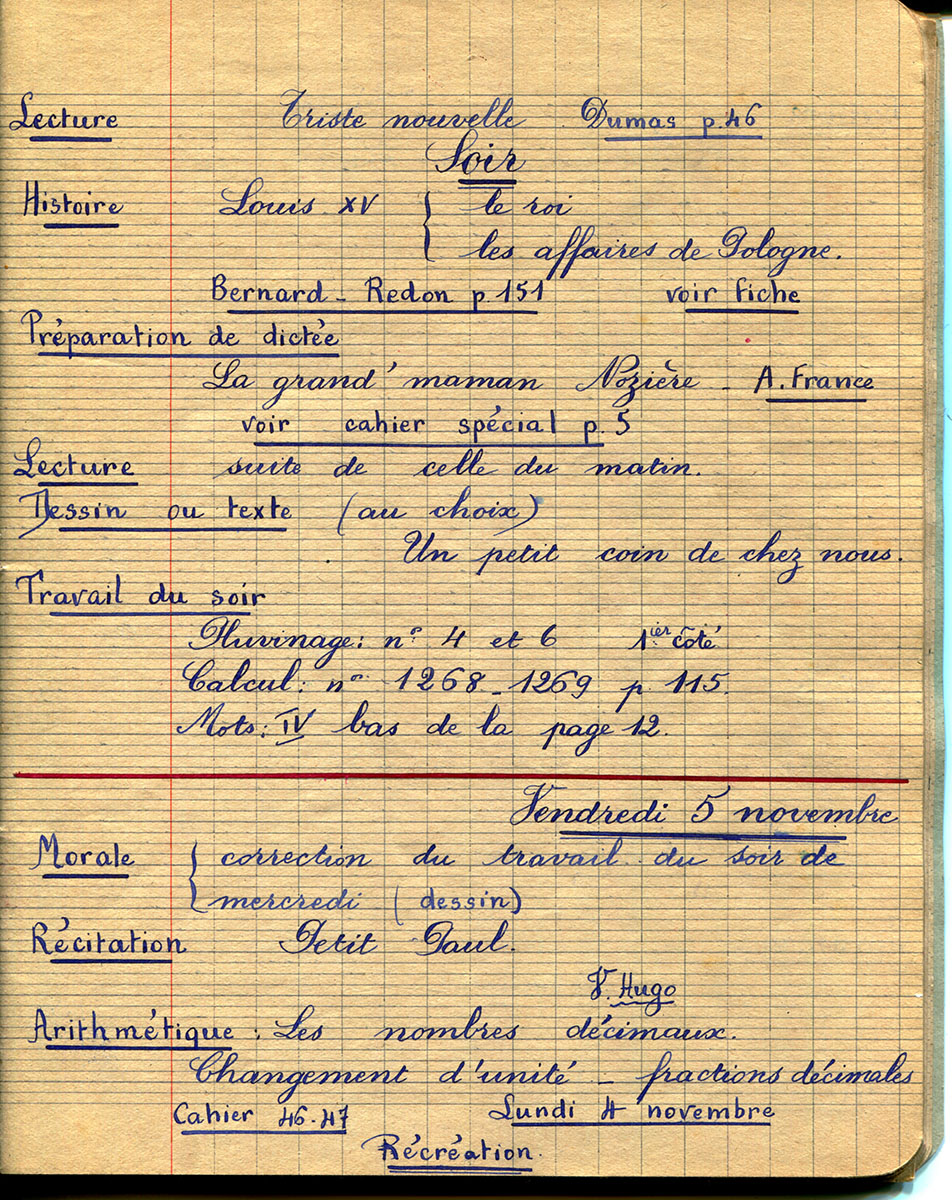 Lecture Triste nouvelle Dumas p. 46
Soir
Histoire Louis XV { le roi
les affaires de Pologne.
Bernard - Redon p 151 voir fiche
Préparation de dictée
La grand' maman Nozière - A. France
voir cahier spécial p. 5
Lecture suite de celle du matin.
Dessin ou texte (au choix)
Un petit coin de chez nous.
Travail du soir
Pluvinage: n° 4 et 6 1ier côté
Calcul: n° 1268 - 1269 p. 115.
Mots: IV bas de la page 12.
Vendredi 5 novembre
Morale { correction du travail du soir de
mercredi (dessin)
Récitation Petit Paul.
V. Hugo
Arithmétique: Les nombres décimaux.
Changement d'unité - fractions décimales
Cahier 46-47 Lundi 4 novembre
Récréation.